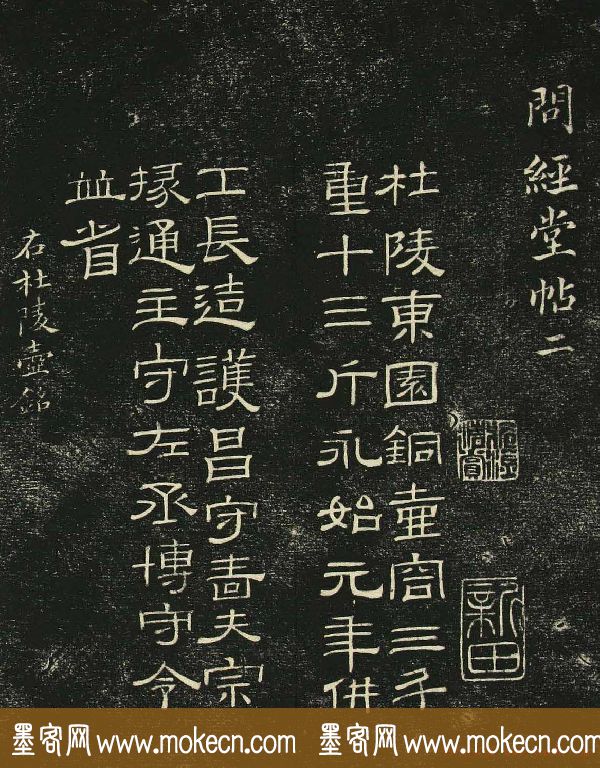 問經堂帖二
新田
杜陵東園銅壺容三斗
重十三斤永始元年供
工長造護昌守嗇夫宗
掾通主守左丞博守令
並省
右杜陵壺銘
墨客网 www.mokecn.com 墨客网 www.mokecn.com